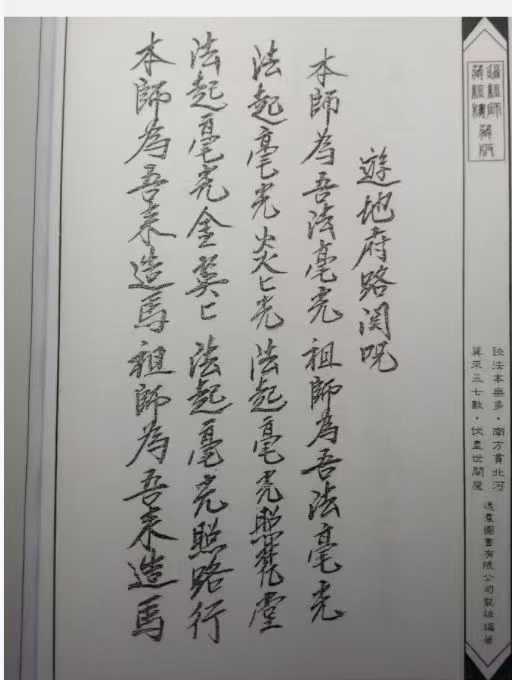 遊地府路関呪
本師為吾法毫光 祖師為吾法毫光
法起毫光炎匕光 法起毫光照梵堂
法起毫光金奚匕 法起毫光照路行
本師為吾来造馬 祖師為吾来造馬
設法本無多·南方貫北河
算來三七數·伏盡世間魔
逸羣圖書有限公司製謹編著